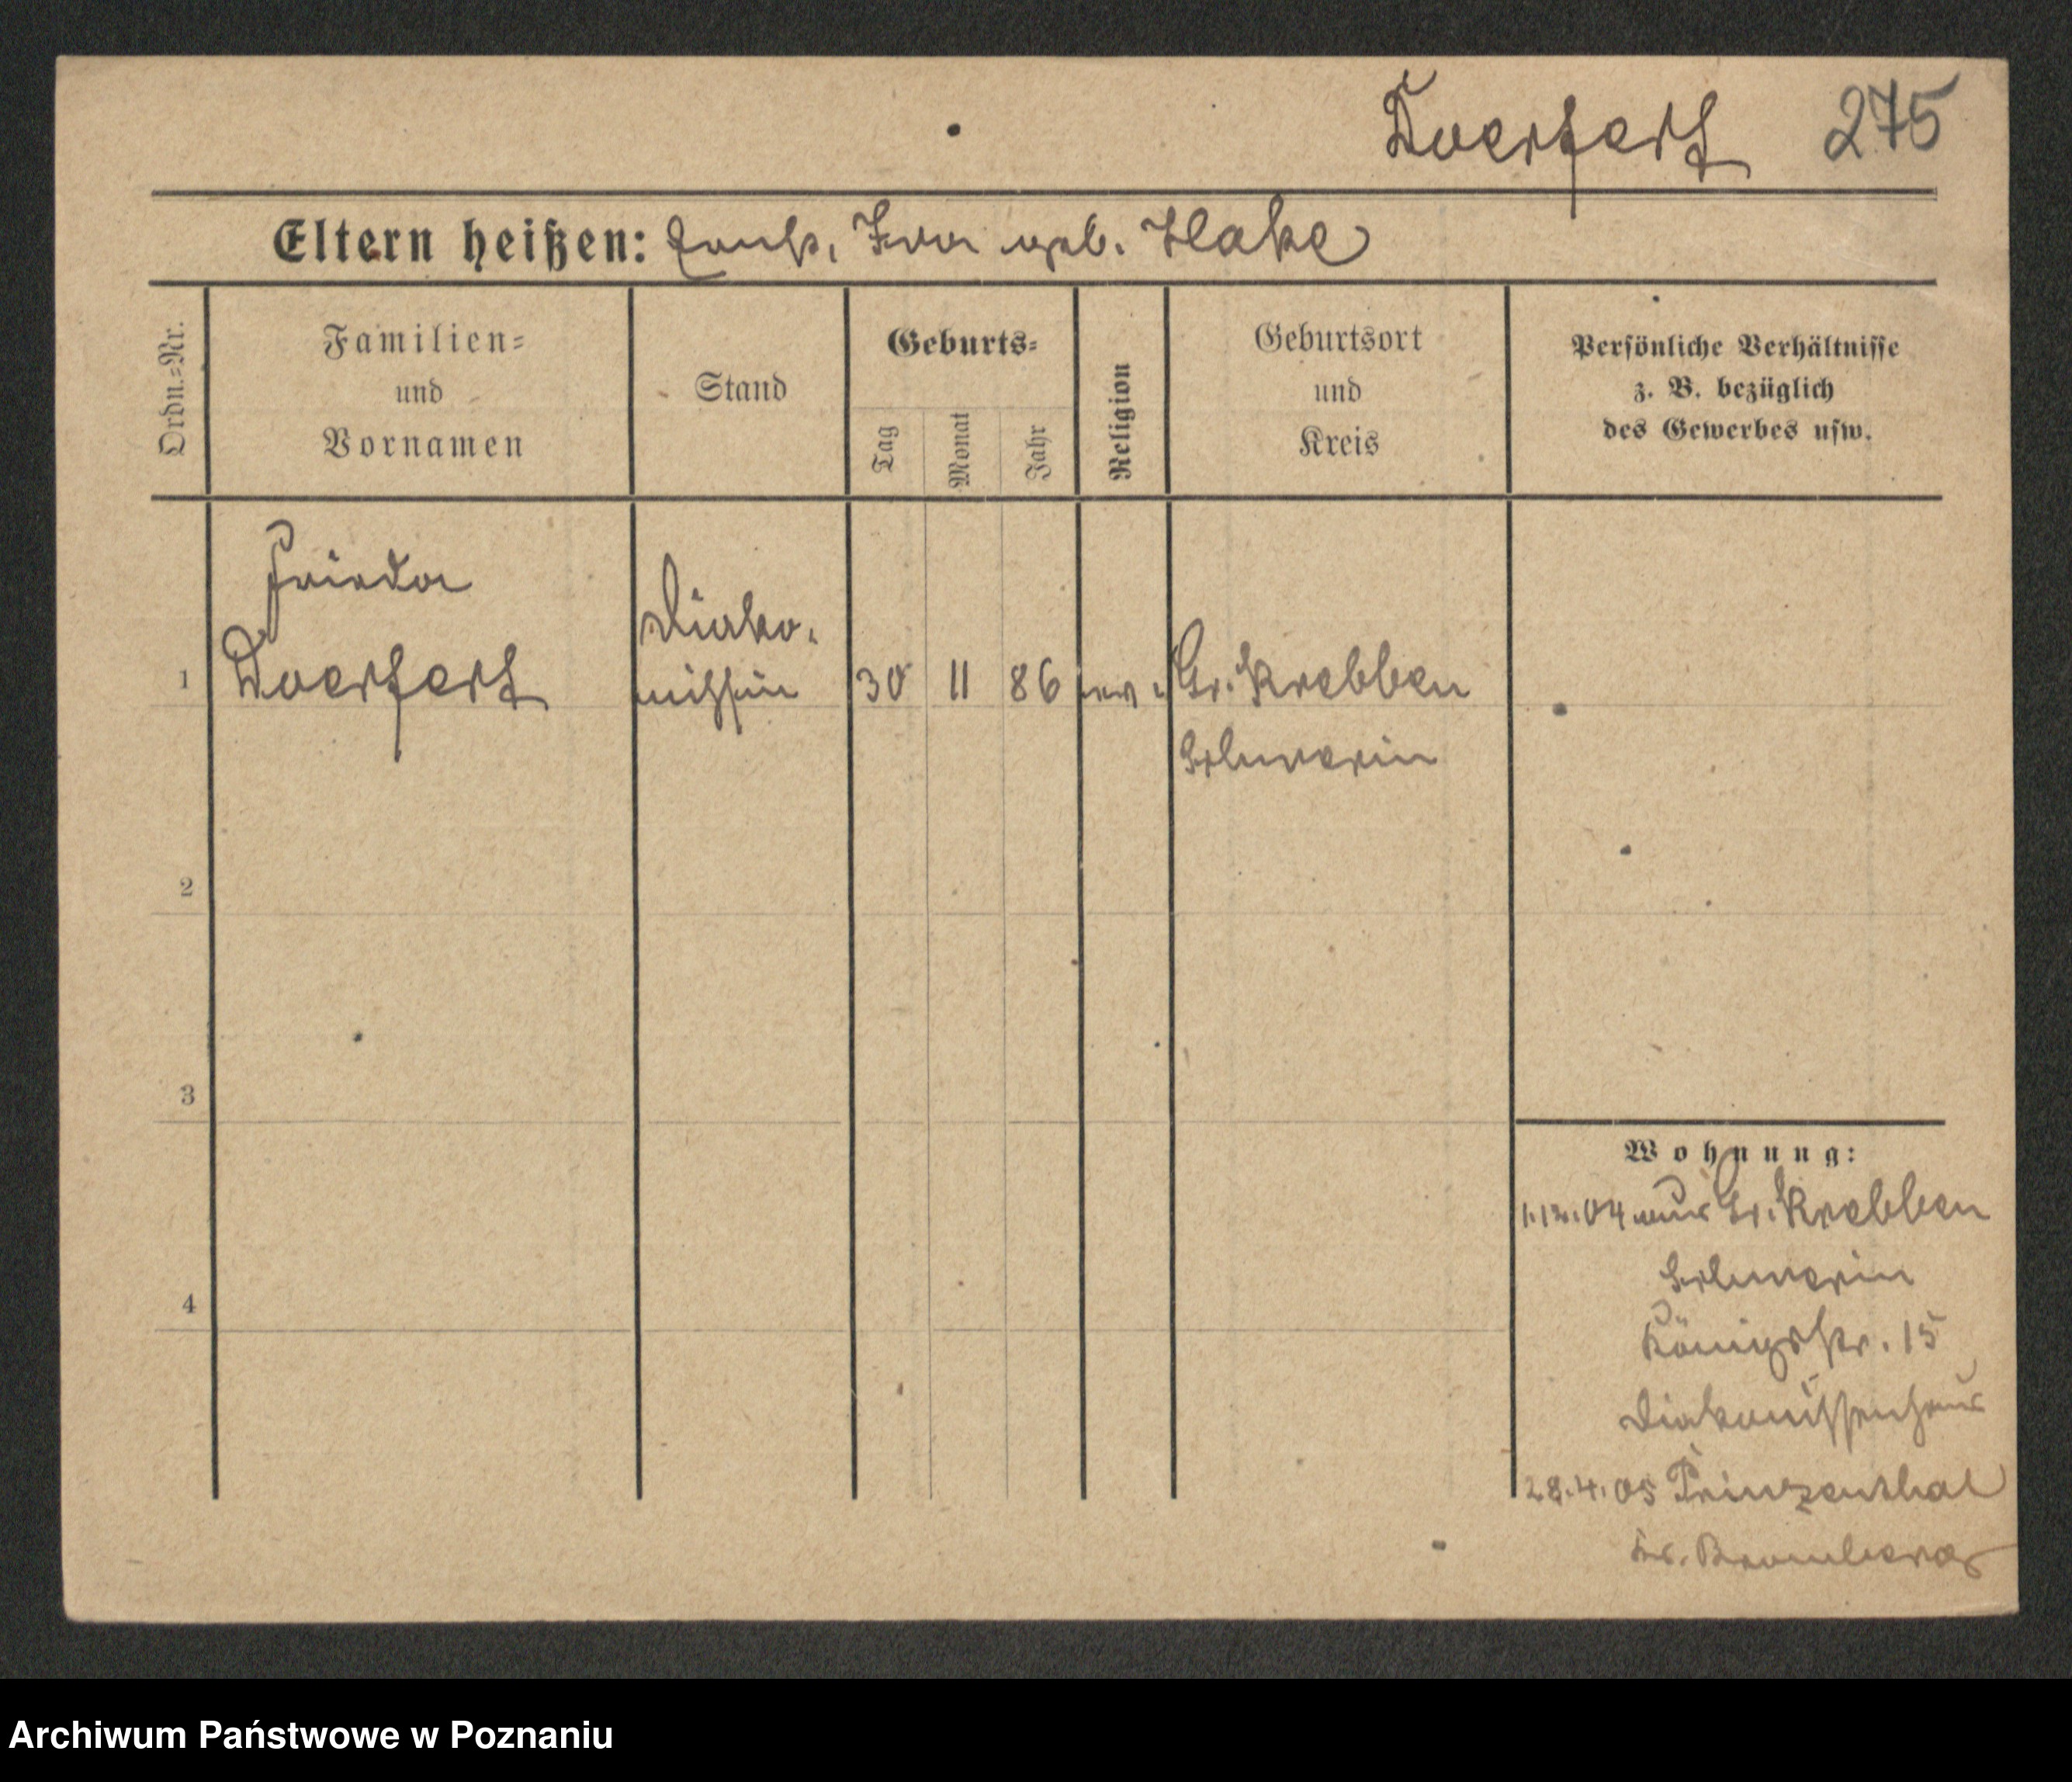 Doerfert 275
Eltern heißen: Ernst, Ida geb. Hake
Ordn.=Nr.
Familien=
und
Vornamen
Stand
Geburts=
Tag
Monat
Jahr
Religion
Geburtsort
und
Kreis
Persönliche Verhältnisse
z. B. bezüglich
des Gewerbes usw.
Frieda
Diako-
1 Doerfert nissin 30 11 86 ev. Gr. Krebben
Schwerin
2
3
4
Wohnung:
1.12.04 aus Gr. Krebben
Schwerin
Königstr. 15
Diakonissenhaus
28.4.05 Prinzenthal
Kr. Bromberg
Archiwum Państwowe w Poznaniu